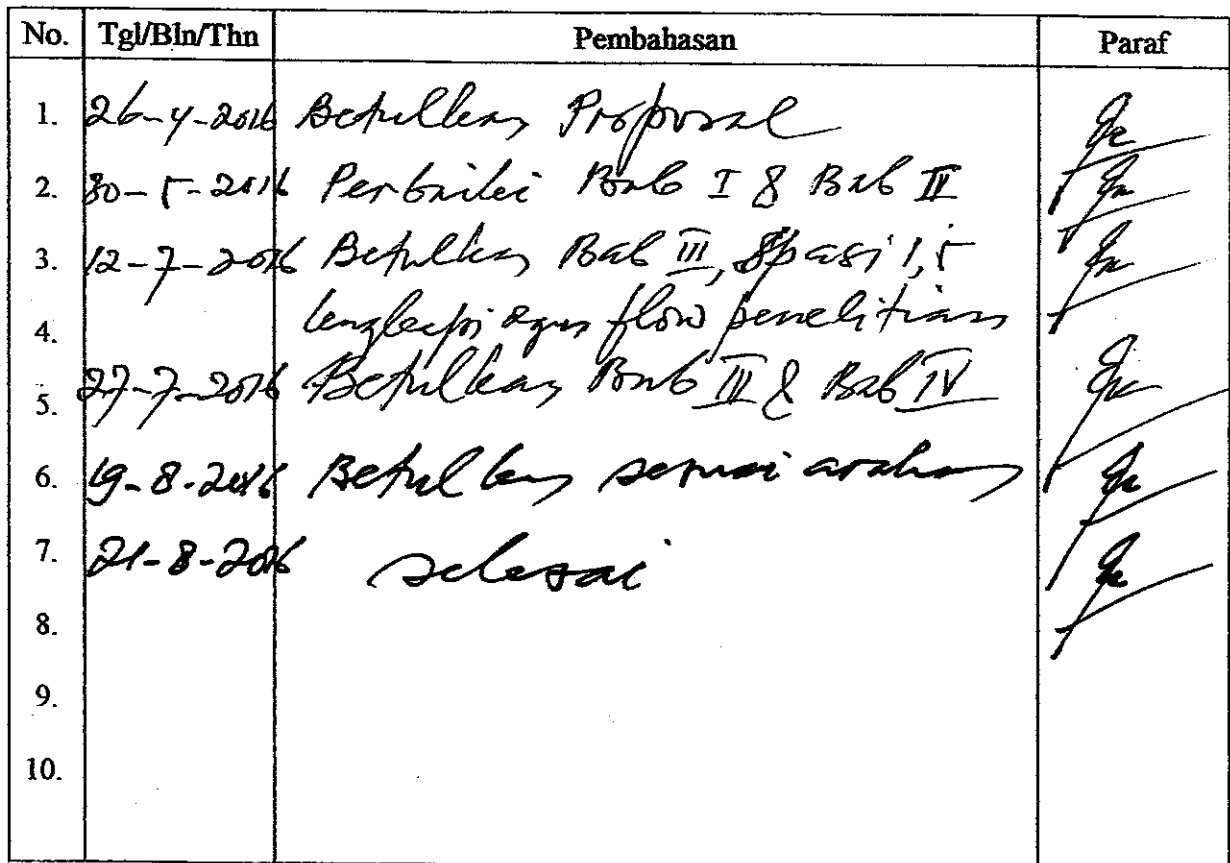 No. Tgl/Bln/Thn Pembahasan Paraf
1. 26-4-2016 Betulkan Proposal
2. 30-5-2016 Perbaiki Bab I & Bab II
3. 12-7-2016 Betulkan Bab III, Spasi 1,5
4. lengkapi dgn flow penelitian
5. 27-7-2016 Betulkan Bab III & Bab IV
6. 19-8-2016 Betulkan sesuai arahan
7. 21-8-2016 selesai
8.
9.
10.